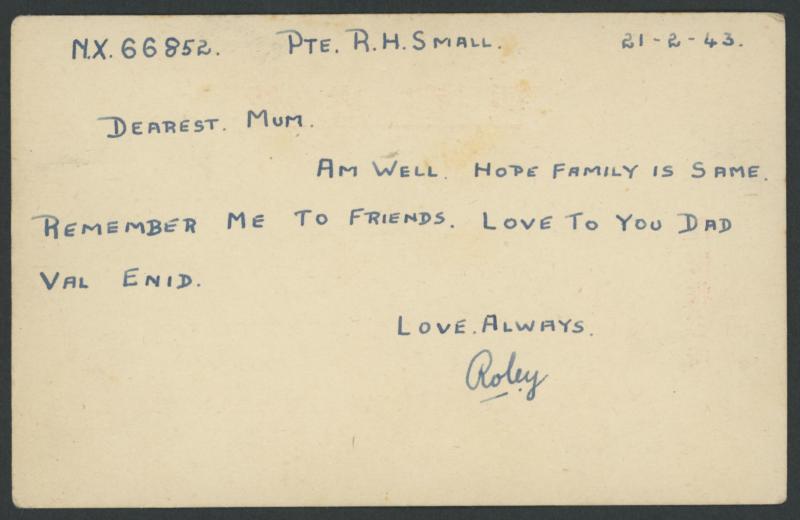 N.X. 66852. PTE. R.H. SMALL. 21-2-43.
DEAREST. MUM.
AM WELL. HOPE FAMILY IS SAME.
REMEMBER ME TO FRIENDS. LOVE TO YOU DAD
VAL ENID.
LOVE. ALWAYS.
Roley